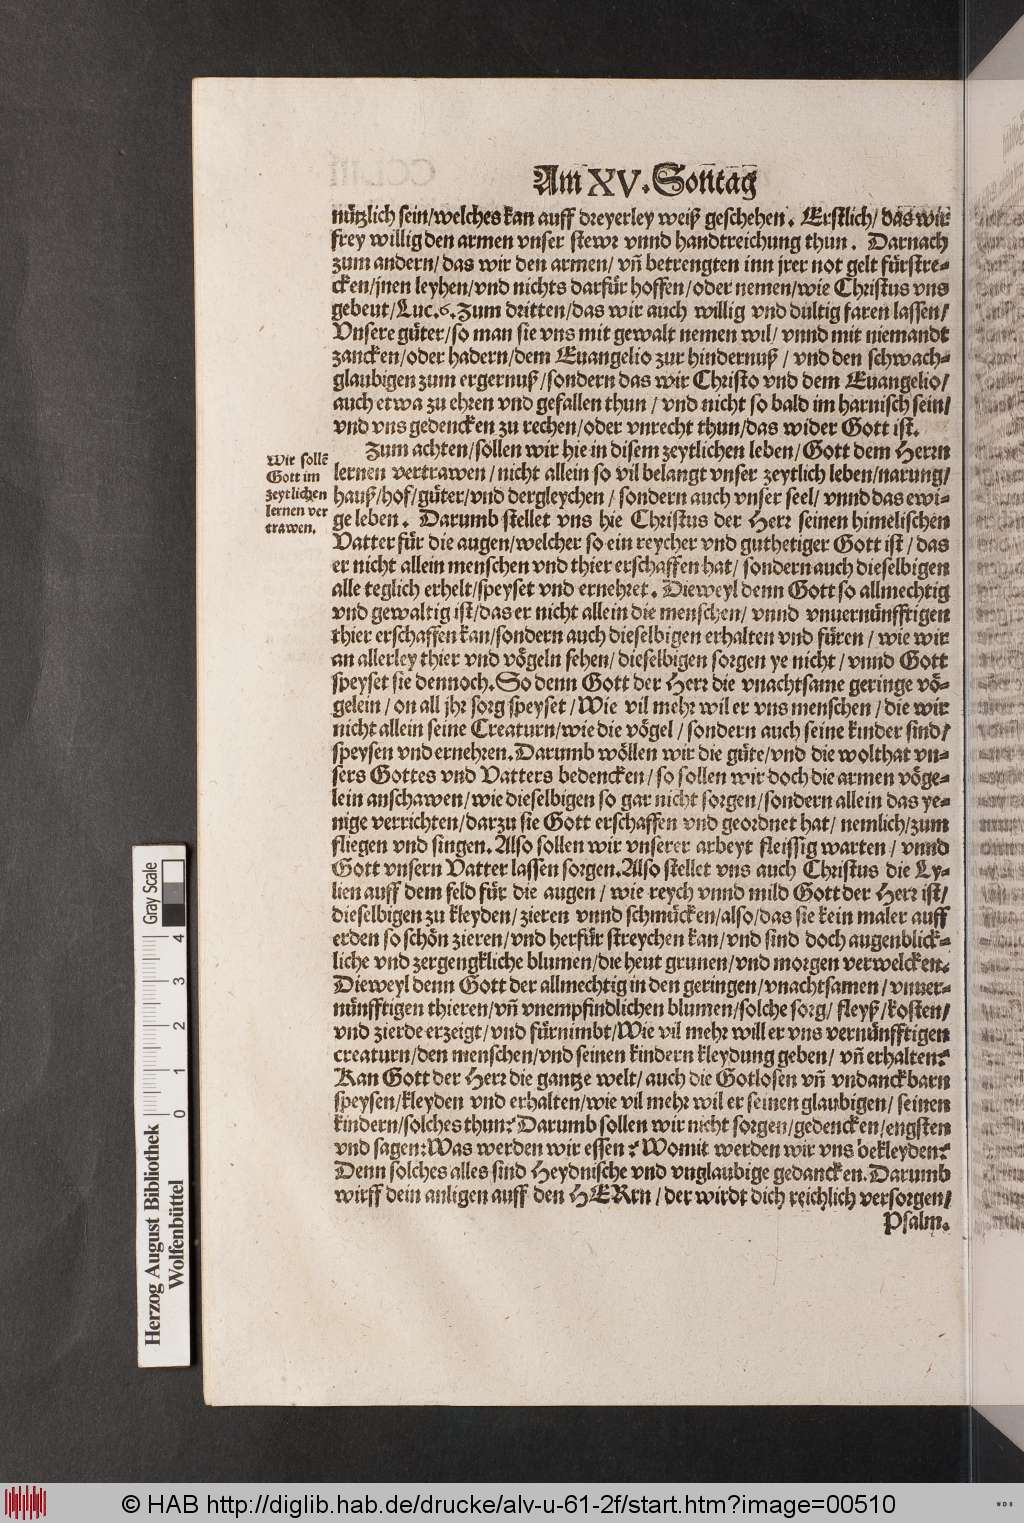 Am XV. Sontag
nützlich sein/welches kan auff dreyerley weiß geschehen. Erstlich/ das wir
frey willig den armen vnser stewr vnnd handtreichung thun. Darnach
zum andern/ das wir den armen/ vñ betrengten inn jrer not gelt fürstre-
cken/jnen leyhen/vnd nichts darfür hoffen/oder nemen/wie Christus vns
gebeut/Luc.6. Zum dritten/das wir auch willig vnd dultig faren lassen/
Vnsere güter/so man sie vns mit gewalt nemen wil/vnnd mit niemandt
zancken/oder hadern/dem Euangelio zur hindernuß/ vnd den schwach-
glaubigen zum ergernuß/sondern das wir Christo vnd dem Euangelio/
auch etwa zu ehren vnd gefallen thun/ vnd nicht so bald im harnisch sein/
vnd vns gedencken zu rechen/oder vnrecht thun/das wider Gott ist.
Wir sollē
Gott im
zeytlichen
lernen ver
trawen.
Zum achten/sollen wir hie in disem zeytlichen leben/Gott dem Herrn
lernen vertrawen/nicht allein so vil belangt vnser zeytlich leben/narung/
hauß/hof/güter/vnd dergleychen/ sondern auch vnser seel/ vnnd das ewi-
ge leben. Darumb stellet vns hie Christus der Herr seinen himelischen
Vatter für die augen/welcher so ein reycher vnd guthetiger Gott ist/ das
er nicht allein menschen vnd thier erschaffen hat/ sondern auch dieselbigen
alle teglich erhelt/speyset vnd ernehret. Dieweyl denn Gott so allmechtig
vnd gewaltig ist/das er nicht allein die menschen/ vnnd vnuernünfftigen
thier erschaffen kan/sondern auch dieselbigen erhalten vnd füren/ wie wir
an allerley thier vnd vögeln sehen/dieselbigen sorgen ye nicht/ vnnd Gott
speyset sie dennoch. So denn Gott der Herr die vnachtsame geringe vö-
gelein/ on all jhr sorg speyset/Wie vil mehr wil er vns menschen/ die wir
nicht allein seine Creaturn/wie die vögel/ sondern auch seine kinder sind/
speysen vnd ernehren. Darumb wöllen wir die güte/vnd die wolthat vn-
sers Gottes vnd Vatters bedencken/ so sollen wir doch die armen vöge-
lein anschawen/wie dieselbigen so gar nicht sorgen/sondern allein das ye-
nige verrichten/darzu sie Gott erschaffen vnd geordnet hat/ nemlich/zum
fliegen vnd singen. Also sollen wir vnserer arbeyt fleissig warten/ vnnd
Gott vnsern Vatter lassen sorgen. Also stellet vns auch Christus die Ly-
lien auff dem feld für die augen/ wie reych vnnd mild Gott der Herr ist/
dieselbigen zu kleyden/ zieren vnnd schmücken/also/das sie kein maler auff
erden so schön zieren/vnd herfür streychen kan/vnd sind doch augenblick-
liche vnd zergengkliche blumen/die heut grunen/vnd morgen verwelcken.
Dieweyl denn Gott der allmechtig in den geringen/vnachtsamen/ vnuer-
nünfftigen thieren/vñ vnempfindlichen blumen/solche sorg/ fleyß/kosten/
vnd zierde erzeigt/vnd fürnimbt/Wie vil mehr will er vns vernünfftigen
creaturn/den menschen/vnd seinen kindern kleydung geben/ vñ erhalten?
Kan Gott der Herr die gantze welt/auch die Gotlosen vñ vndanckbarn
speysen/kleyden vnd erhalten/wie vil mehr wil er seinen glaubigen/ seinen
kindern/solches thun? Darumb sollen wir nicht sorgen/gedencken/engsten
vnd sagen: Was werden wir essen? Womit werden wir vns bekleyden?
Denn solches alles sind Heydnische vnd vnglaubige gedancken. Darumb
wirff dein anligen auff den HERrn/ der wirdt dich reichlich versorgen/
Psalm.
Gray Scale
4 3 2 1 0
Herzog August Bibliothek
Wolfenbüttel
© HAB http://diglib.hab.de/drucke/alv-u-61-2f/start.htm?image=00510